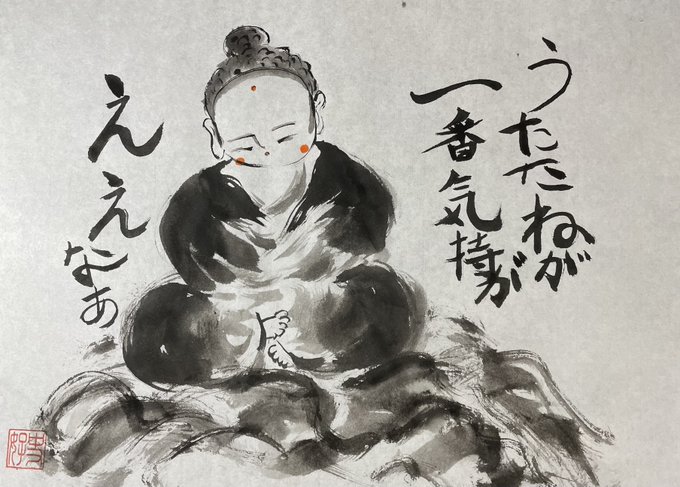 うたたねが
一番気持が
ええ
なぁ